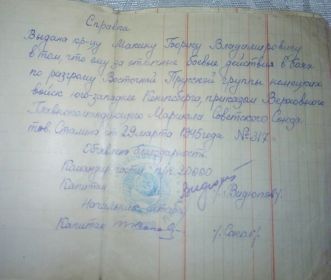 Справка
Выдана кр-цу Макену Борису Владимировичу
в том, что ему за отличные боевые действия в боях
по разгрому Восточной Прусской группы немецких
войск юго-западнее Кенигсберга приказом Верховного
Главнокомандующего Маршала Советского Союза
тов. Сталина от 29 марта 1945 года № 317.
Объявлена благодарность.
Командир части п/п 20000
Капитан
Начальник штаба
Капитан